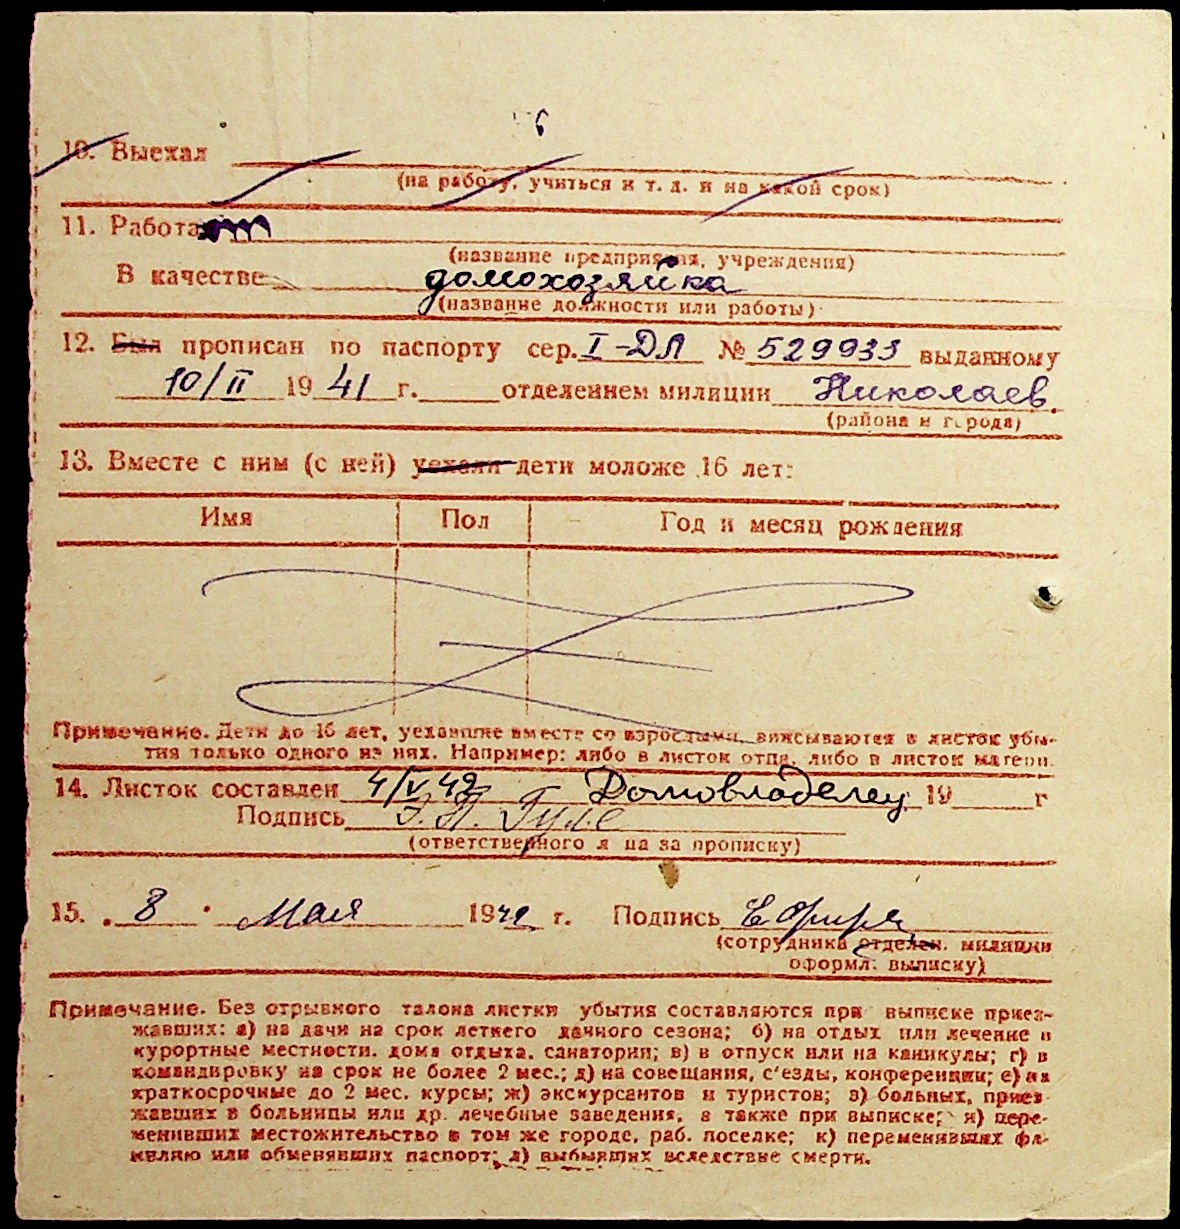 10. Выехал
(на работу, учиться и т. д. и на какой срок)
11. Работа
(название предприятия, учреждения)
В качестве домохозяйка
(название должности или работы)
12. Был прописан по паспорту сер. I-ДЛ № 529933 выданному
10/II 1941 г. отделением милиции Николаев.
(района и города)
13. Вместе с ним (с ней) уехали дети моложе 16 лет:
Имя Пол Год и месяц рождения
Примечание. Дети до 16 лет, уехавшие вместе со взрослыми, вписываются в листок убы-
тия только одного из них. Например: либо в листок отца, либо в листок матери.
14. Листок составлен 4/V 42 Домовладелец 19 г
Подпись
(ответственного лица за прописку)
15. 8 Мая 1942 г. Подпись
(сотрудника отделен. милиции
оформл. выписку)
Примечание. Без отрывного талона листки убытия составляются при выписке приез-
жавших: а) на дачи на срок летнего дачного сезона; б) на отдых или лечение в
курортные местности, дома отдыха, санатории; в) в отпуск или на каникулы; г) в
командировку на срок не более 2 мес.; д) на совещания, с'езды, конференции; е) на
краткосрочные до 2 мес. курсы; ж) экскурсантов и туристов; з) больных, приез-
жавших в больницы или др. лечебные заведения, а также при выписке; и) пере-
менивших местожительство в том же городе, раб. поселке; к) переменивших фа-
милию или обменявших паспорт; л) выбывших вследствие смерти.